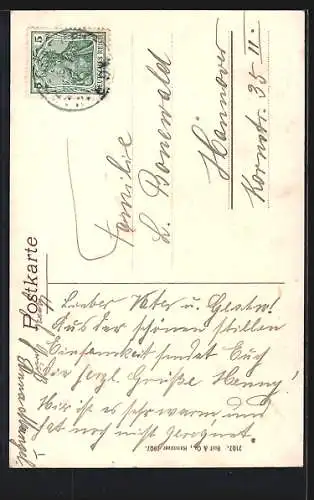 Postkarte
5
Familie
L. Bonewald
Hannover
Kornstr. 35 II.
Lieber Vater u. Geschw!
Aus der schönen stillen
Einsamkeit sendet Euch
die herzl. Grüße Henny!
Hier ist es sehr warm und
hat noch nicht geregnet.
Gruß
Anna
7107. Rust & Co., Hannover 1907.